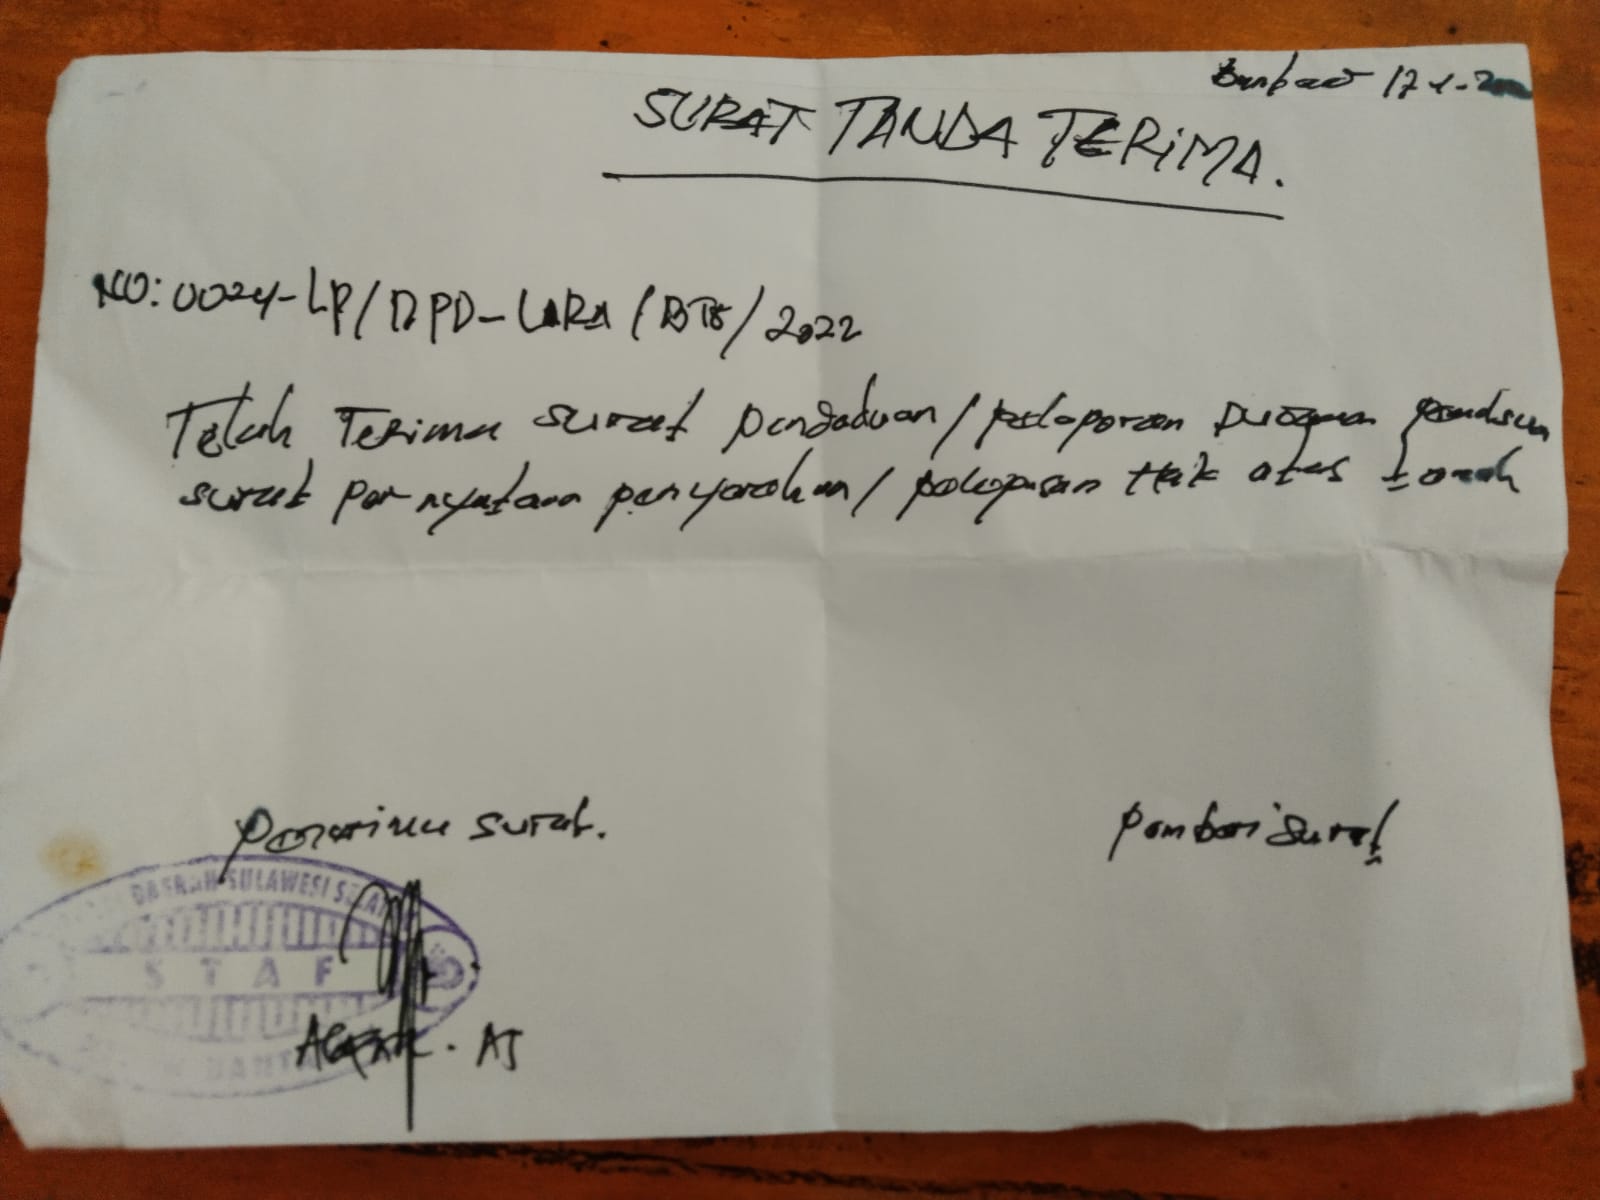 17-1-
SURAT TANDA TERIMA.
NO: 0024-LP/DPD-LARA/BTG/2022
Telah Terima surat pengaduan/pelaporan Dugaan
surat pernyataan penyerahan/pelepasan Hak atas tanah
penerima surat.
pemberi surat
DAERAH SULAWESI SELAT
STAF
BANTA
AJ